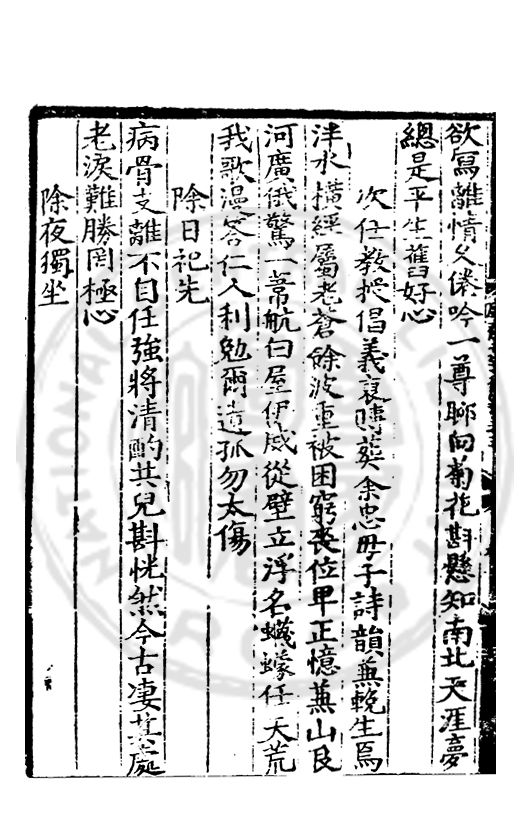 欲寫離情久倦吟一尊聊向菊花斟懸知南北天涯夢
總是平生舊好心
次任教授倡義裒賻葬余忠毋子詩韻蕪輓生焉
泮水橫經屬老蒼餘波重被困窮喪位卑正憶蕪山良
河廣俄驚一葦航白屋伊威從壁立浮名蠛蠓任天荒
我歌漫答仁人利勉爾遺孤勿太傷
除日祀先
病骨支離不自任強將清酌共兒斟恍然今古凄其處
老淚難勝罔極心
除夜獨坐